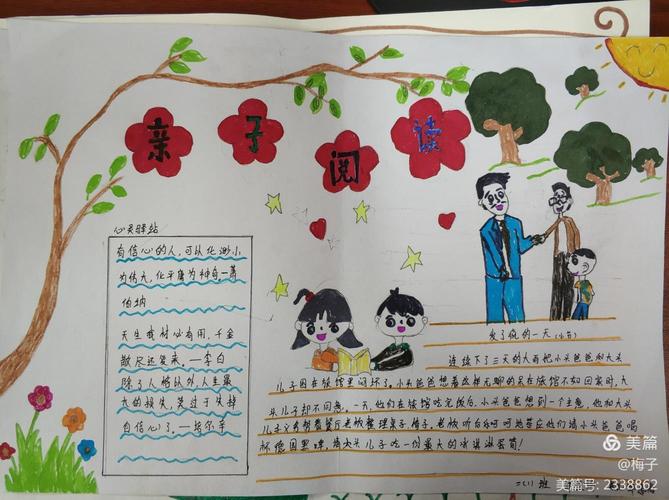 亲子阅读
心灵驿站
有信心的人,可以化渺小
为伟大,化平庸为神奇。—萧
伯纳
天生我材必有用,千金
散尽还复来。—李白
除了人格以外,人生最
大的损失,莫过于失掉
自信心了。—培尔辛
发了疯的一天(小节)
连续下了三天的大雨把小头爸爸和大头
儿子困在旅馆里闷坏了。小头爸爸想着这样无聊的呆在旅馆不如回家时,大
头儿子却不同意。一天,他们在旅馆吃完饭后,小头爸爸想到一个主意,他和大头
儿子义务帮着餐厅老板整理桌子椅子。老板听后呵呵地答应他们请小头爸爸喝
啤酒,请大头儿子吃一份最大的冰淇淋蛋筒!
二(1)班
美篇
@梅子
美篇号: 2338862